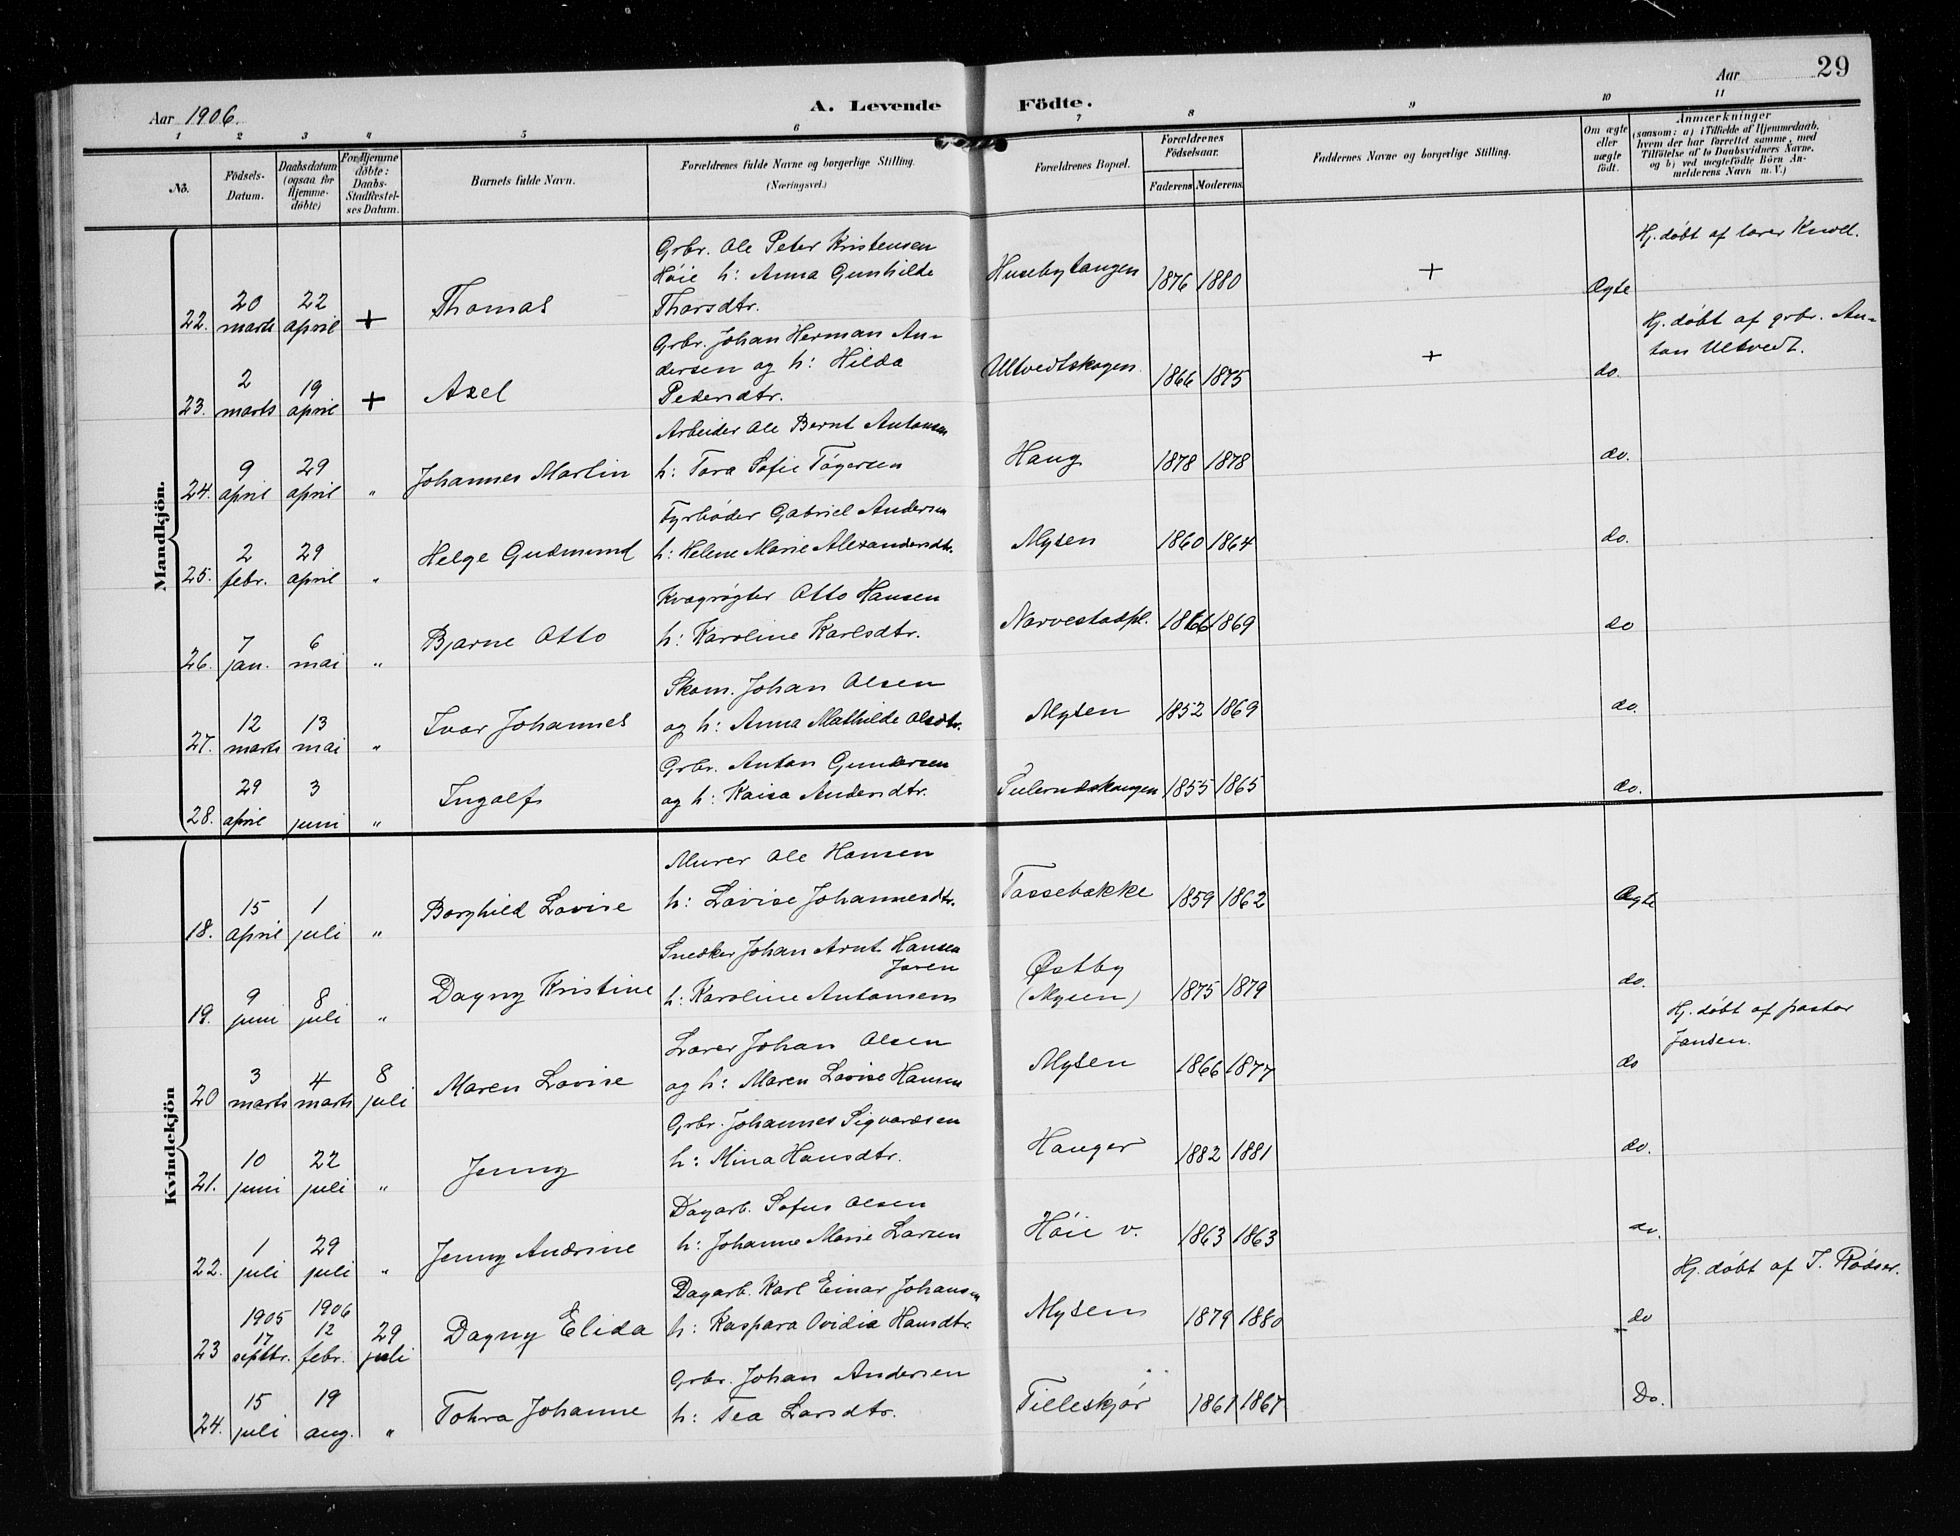 Aar 1906.
A. Levende Födte.
Aar
29
1 2 3 4 5 6 7 8 9 10 11
No.
Födsels-Datum.
Daabsdatum (ogsaa for Hjemme-döbte)
For Hjemme döbte: Daabs-Stadfestel-ses Datum.
Barnets fulde Navn.
Forældrenes fulde Navne og borgerlige Stilling. (Næringsvei.)
Forældrenes Bopæl.
Forældrenes Födselsaar.
Faderens Moderens.
Faddernes Navne og borgerlige Stilling.
Om ægte eller uægte födt.
Anmærkninger
(saasom: a) i Tilfælde af Hjemmedaab, hvem der har forrettet samme, med Tilföielse af to Daabsvidners Navne. og b) ved uegtefödte Börn An-melderens Navn m. V.)
Mandkjön.
22. 20 marts 22 april + Thomas Grbr. Ole Peter Kristensen Høie h: Anna Gunhilde Thorsdtr. Husebytangen 1876 1880 + Ægte Hj. døbt af lærer Knoll.
23. 2 marts 19 april + Axel Grbr. Johan Herman Andersen og h: Hilda Pedersdtr. Ultvedtskogen. 1866 1875 + do. Hj. døbt af grbr. Anton Ultvedt.
24. 9 april 29 april " Johannes Martin Arbeider Ole Bernt Antonsen h: Tora Sofie Tøgersen Haug 1878 1878 do.
25. 2 febr. 29 april " Helge Gudmund Fyrbøder Gabriel Andersen h: Helene Marie Alexandersdtr. Mysen 1860 1864 do.
26. 7 jan. 6 mai " Bjarne Otto Kvægrøgter Otto Hansen h: Karoline Karlsdtr. Narvestadpl. 1866 1869 do
27. 12 marts 13 mai " Ivar Johannes Skom. Johan Olsen og h: Anna Mathilde Olsdtr. Mysen 1852 1869 do.
28. 29 april 3 juni " Ingolf Grbr. Anton Gundersen og h: Kaisa Andersdtr. 1855 1865 do.
Kvindekjön
18. 15 april 1 juli " Borghild Lovise Murer Ole Hansen h: Lovise Johannesdtr. Tassebække 1859 1862 Ægte
19. 9 juni 8 juli " Dagny Kristine Snedker Johan Arnt Hansen Joren h: Karoline Antonsens Østby (Mysen) 1875 1879 do.
20 3 marts 4 marts 8 juli Maren Lovise Lærer Johan Olsen og h: Maren Lovise Hansen Mysen 1866 1877 do Hj. døbt af pastor Jansen.
21. 10 juni 22 juli " Jenny Grbr. Johannes Sigvardsen h: Mina Hansdtr. Hauger 1882 1881 do.
22. 1 juli 29 juli " Jenny Andrine Dagarb. Sofus Olsen h: Johanne Marie Larsen Høie v. 1863 1863 do.
23 1905 17 septbr. 1906 12 febr. 29 juli Dagny Elida Dagarb. Karl Einar Johansen h: Kaspara Ovidia Hansdtr. Mysen 1879 1880 do Hj. døbt af I. Rødser.
24. 15 juli 19 aug. " Tohra Johanne Grbr. Johan Andersen h: Tea Larsdtr. Tilleskjør 1861 1867 Do.